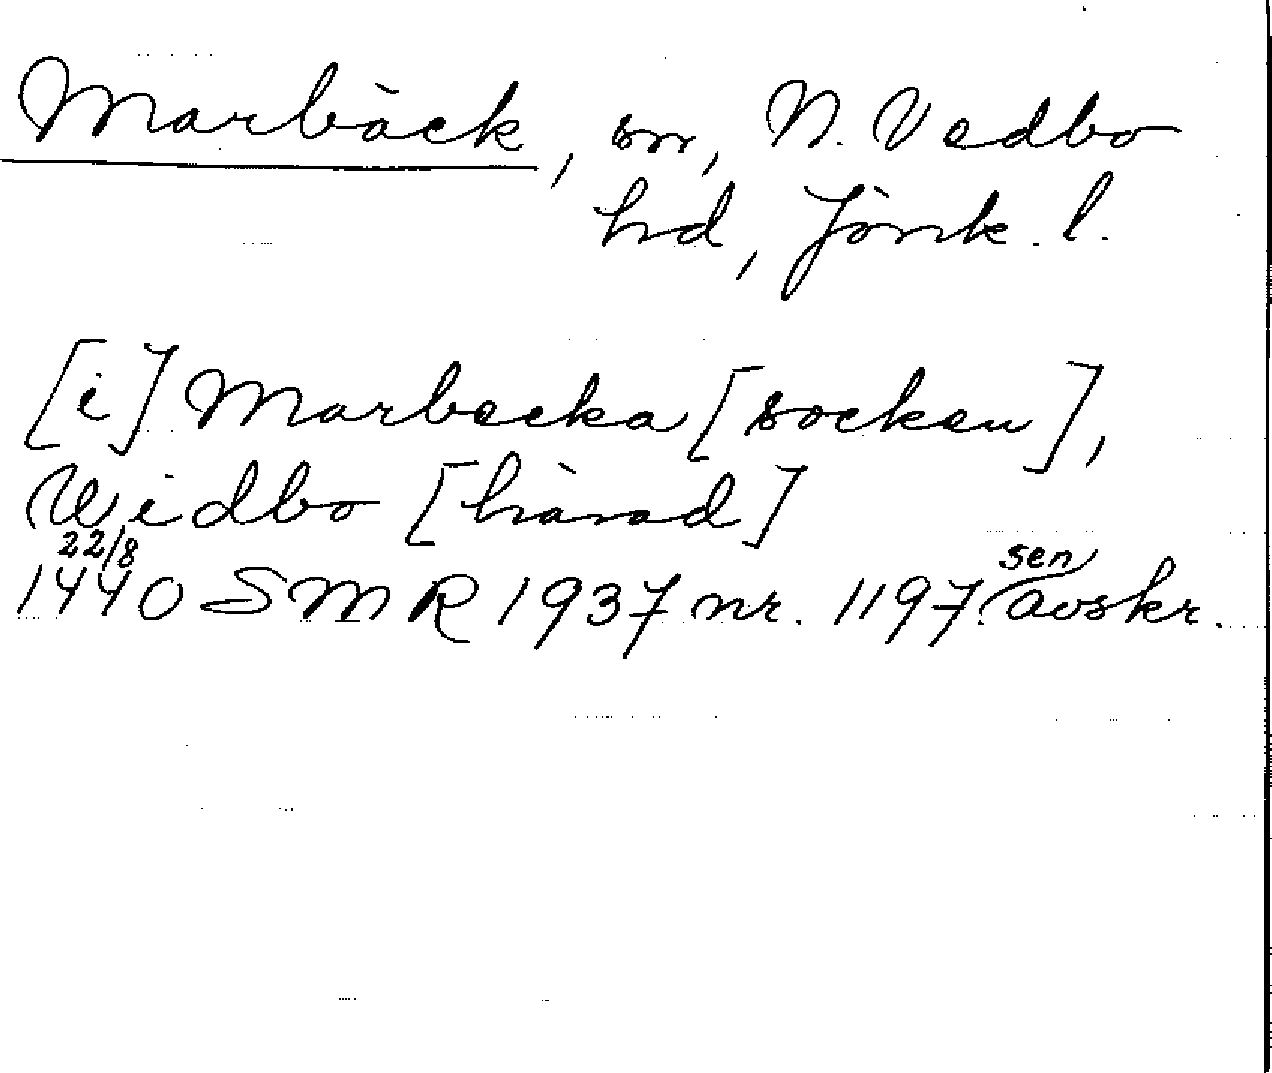 Marbäck, sn, N. Vedbo
hd, Jönk. l.
[i] Marbecka [socken],
Widbo [härad]
22/8 sen
1440 SMR 1937 nr. 1197. avskr.